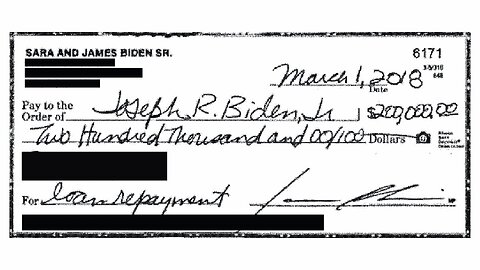 SARA AND JAMES BIDEN SR.
6171
March 1, 2018
Date
Pay to the
Order of Joseph R. Biden, Jr $200,000.00
Two Hundred Thousand and 00/100 Dollars
For loan repayment